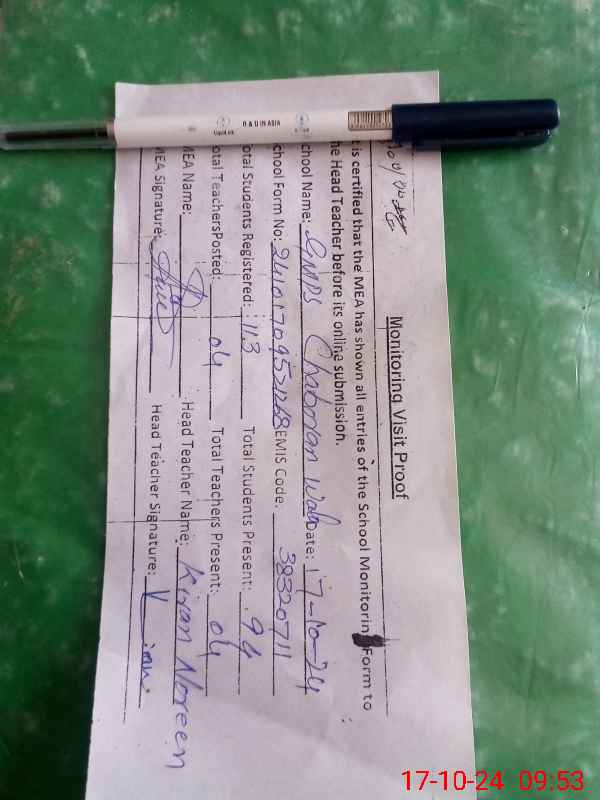 Monitoring Visit Proof
t is certified that the MEA has shown all entries of the School Monitorin Form to
he Head Teacher before its online submission.
chool Name: GMPS Chabrian Wala Date: 17-10-24
chool Form No: 24101709521268 EMIS Code: 38320711
otal Students Registered: 113 Total Students Present: 94
otal TeachersPosted: 04 Total Teachers Present: 04
MEA Name: Head Teacher Name: Kiran Noreen
MEA Signature: Head Teacher Signature: Kiran
R & D IN ASIA
17-10-24 09:53